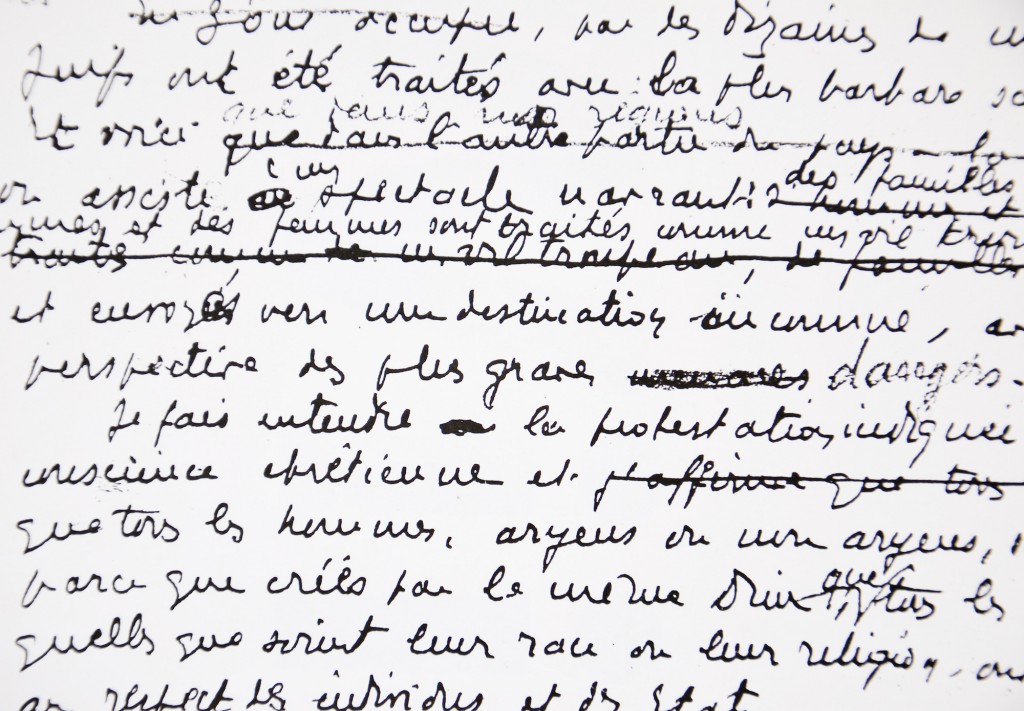 zone occupée, par des dizaines de
Juifs ont été traités avec la plus barbare
que dans nos régions
Et voici que dans l'autre partie du pays - la
on assiste à un spectacle navrant : des familles
hommes et
et des femmes sont traités comme un vil
traités comme un vil troupeau, de familles
et envoyés vers une destination inconnue,
perspective des plus graves dangers.
Je fais entendre la protestation indignée
conscience chrétienne et j'affirme que tous
que tous les hommes, aryens ou non aryens,
parce que créés par le même Dieu, que tous les
quelle que soit leur race ou leur religion,
au respect des individus et des Etat